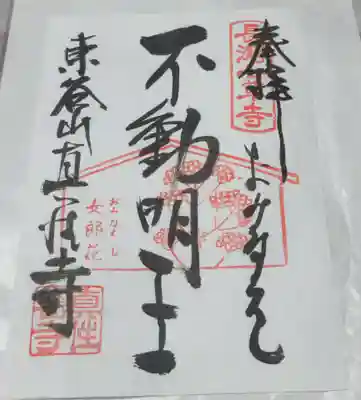 長瀞七草寺
奉拝 おみなえし
不動明王
おみなえし
女郎花
東谷山真性寺